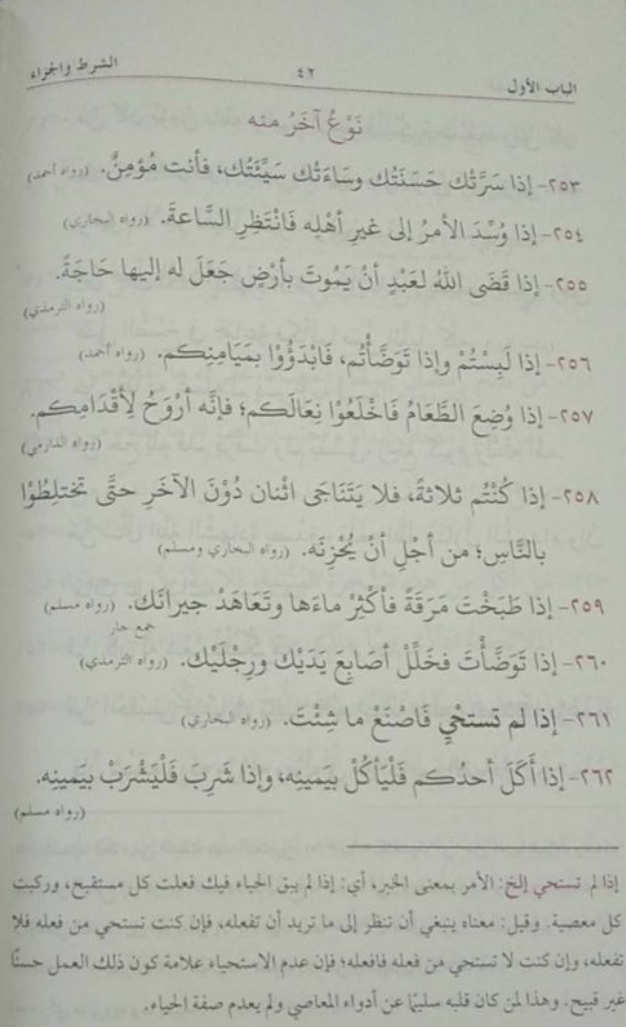 الباب الأول ٤٢ الشرط والجزاء
نَوْعٌ آخَرُ منه
٢٥٣- إذا سَرَّتْك حَسَنَتُك وسَاءَتْك سَيِّئَتُك، فأنت مُؤمِنٌ. (رواه أحمد)
٢٥٤- إذا وُسِّدَ الأمرُ إلى غيرِ أهْلِه فَانْتَظِرِ السَّاعةَ. (رواه البخاري)
٢٥٥- إذا قَضَى اللهُ لعَبْدٍ أنْ يَمُوتَ بأرْضٍ جَعَلَ له إليها حَاجَةً.
(رواه الترمذي)
٢٥٦- إذا لَبِسْتُمْ وإذا تَوَضَّأْتُم، فَابْدَؤُوْا بمَيَامِنِكم. (رواه أحمد)
٢٥٧- إذا وُضِعَ الطَّعَامُ فَاخْلَعُوْا نِعَالَكم؛ فإنَّه أرْوَحُ لِأقْدَامِكم.
(رواه الدارمي)
٢٥٨- إذا كُنْتُم ثلاثةً، فلا يَتَنَاجَى اثْنان دُوْنَ الآخَرِ حتَّى تختلِطُوْا
بالنَّاسِ؛ من أجْلِ أنْ يُحْزِنَه. (رواه البخاري ومسلم)
٢٥٩- إذا طَبَخْتَ مَرَقَةً فأكْثِرْ ماءَها وتَعَاهَدْ جيرانَك. (رواه مسلم)
جمع جار
٢٦٠- إذا تَوَضَّأْتَ فخَلِّلْ أصَابِعَ يَدَيْك ورِجْلَيْك. (رواه الترمذي)
٢٦١- إذا لم تستحْيِ فَاصْنَعْ ما شِئْتَ. (رواه البخاري)
٢٦٢- إذا أَكَلَ أحدُكم فَلْيَأكُلْ بيَمينِه، وإذا شَرِبَ فَلْيَشْرَبْ بيَمينِه.
(رواه مسلم)
إذا لم تستحي إلخ: الأمر بمعنى الخبر، أي: إذا لم يبق الحياء فيك فعلت كل مستقبح، وركبت
كل معصية. وقيل: معناه ينبغي أن تنظر إلى ما تريد أن تفعله، فإن كنت تستحي من فعله فلا
تفعله، وإن كنت لا تستحي من فعله فافعله؛ فإن عدم الاستحياء علامة كون ذلك العمل حسنًا
غير قبيح. وهذا لمن كان قلبه سليمًا عن أدواء المعاصي ولم يعدم صفة الحياء.